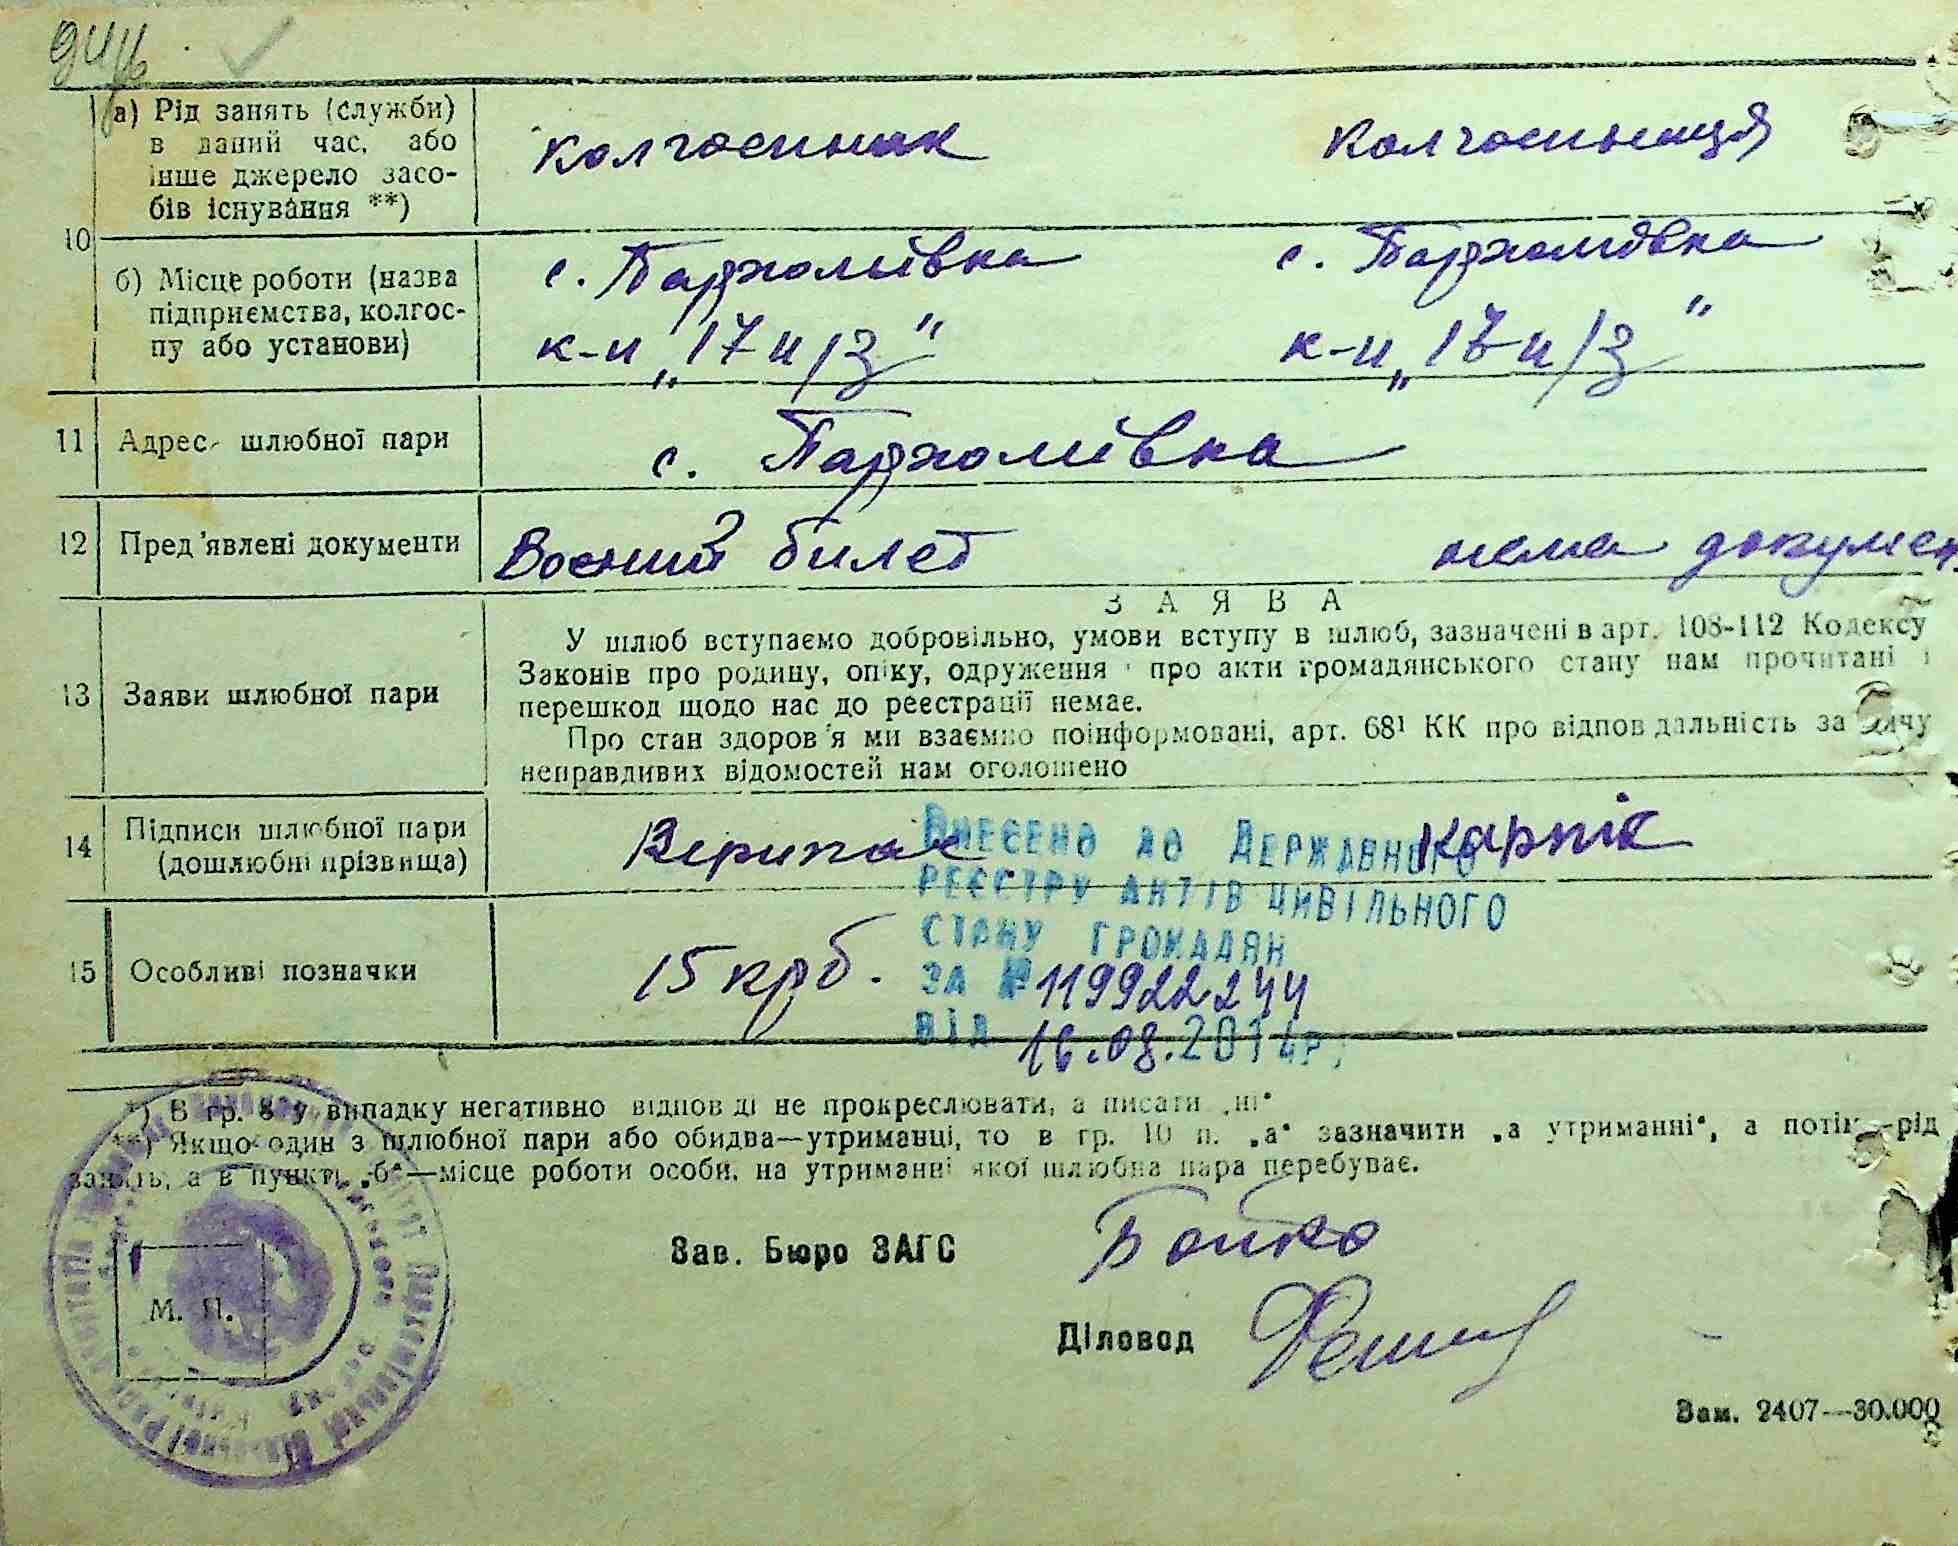 а) Рід занять (служби)
в даний час, або
інше джерело засо-
бів існування **)
колгоспник колгоспниця
10
б) Місце роботи (назва
підприємства, колгос-
пу або установи)
с. Пархомівка с. Пархомівка
к-п „17 п/з" к-п „17 п/з"
11 Адрес шлюбної пари с. Пархомівка
12 Пред'явлені документи Воєний билет нема докумен
ЗАЯВА
13 Заяви шлюбної пари
У шлюб вступаємо добровільно, умови вступу в шлюб, зазначені в арт. 108-112 Кодексу
Законів про родину, опіку, одруження і про акти громадянського стану нам прочитані і
перешкод щодо нас до реєстрації немає.
Про стан здоров'я ми взаємно поінформовані, арт. 68¹ КК про відповідальність за дачу
неправдивих відомостей нам оголошено
14 Підписи шлюбної пари
(дошлюбні прізвища)
Карпік
ВНЕСЕНО ДО ДЕРЖАВНОГО
РЕЄСТРУ АКТІВ ЦИВІЛЬНОГО
СТАНУ ГРОМАДЯН
ЗА № 119922244
ВІД 16.08.2014р.
15 Особливі позначки 15 крб.
*) В гр. 8 у випадку негативно відповіді не прокреслювати, а писати „ні"
**) Якщо один з шлюбної пари або обидва—утриманці, то в гр. 10 п. „а" зазначити „а утриманні", а потім—рід
занять, а в пункті „б"—місце роботи особи, на утриманні якої шлюбна пара перебуває.
М. П.
Зав. Бюро ЗАГС Бойко
Діловод
Зам. 2407—30.000